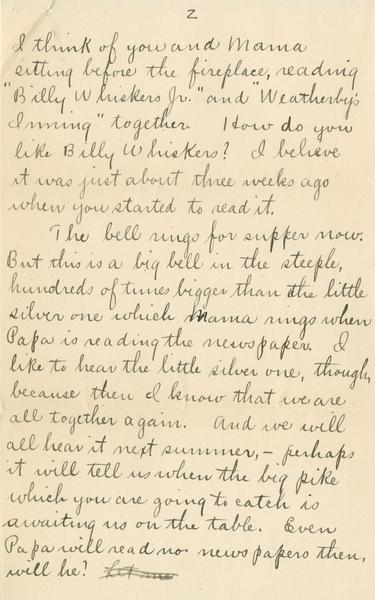 2
I think of you and Mama
sitting before the fireplace, reading
"Billy Whiskers Jr." and "Weatherby's
Inning" together. How do you
like Billy Whiskers? I believe
it was just about three weeks ago
when you started to read it.
The bell rings for supper now.
But this is a big bell in the steeple,
hundreds of times bigger than the little
silver one which Mama rings when
Papa is reading the newspaper. I
like to hear the little silver one, though,
because then I know that we are
all together again. And we will
all hear it next summer, - perhaps
it will tell us when the big pike
which you are going to catch is
awaiting us on the table. Even
Papa will read no newspapers then,
will he?